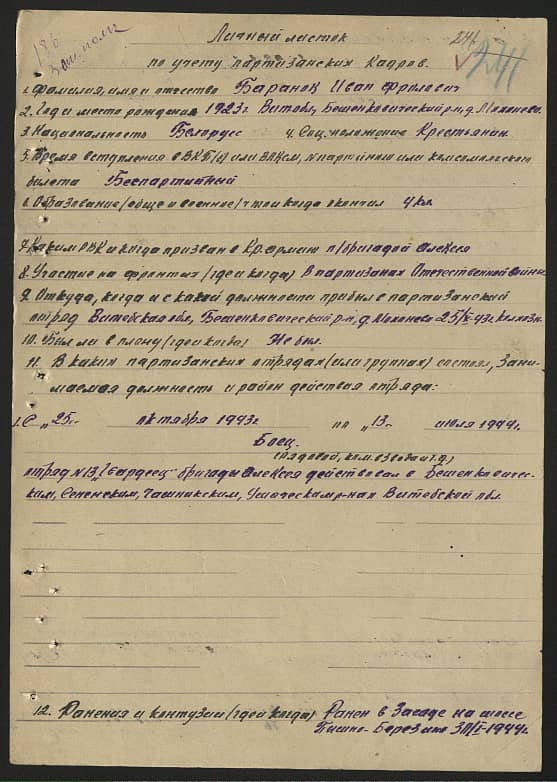 241
Личный листок
по учету партизанских кадров.
1. Фамилия, имя и отчество Баранок Иван Фролович
2. Год и место рождения 1923 г. Витобл, Бешенковический р-н, д. Мохонево.
3. Национальность Белорус 4. Соц. положение Крестьянин.
5. Время вступления в ВКП(б) или ВЛКСМ, № партийного или комсомольского
билета Беспартийный
6. Образование (обще и военное) что и когда окончил 4 кл.
7. Каким РВК и когда призван в Кр. армию п/бригадой Алексея
8. Участие на фронтах (где и когда) В партизанах Отечественной войны
9. Откуда, когда и с какой должности прибыл в партизанский
отряд Витебская обл, Бешенковический р-н, д. Мохонево 25/X-43г. колхозн.
10. Был ли в плену (где и когда) Не был.
11. В каких партизанских отрядах (или группах) состоял, зани-
маемая должность и район действия отряда:
1. С "25" октября 1943г по "13" июля 1944г.
Боец.
(рядовой, ком. взвода и т.д.)
отряд №13 "Гвардеец" бригады Алексея действовал в Бешенковичес-
ком, Сененским, Чашникским, Ушачеським р-нах Витебской обл.
12. Ранения и контузии (где и когда) Ранен в Засаде на шоссе
Пышно-Березино 30/I-1944г.